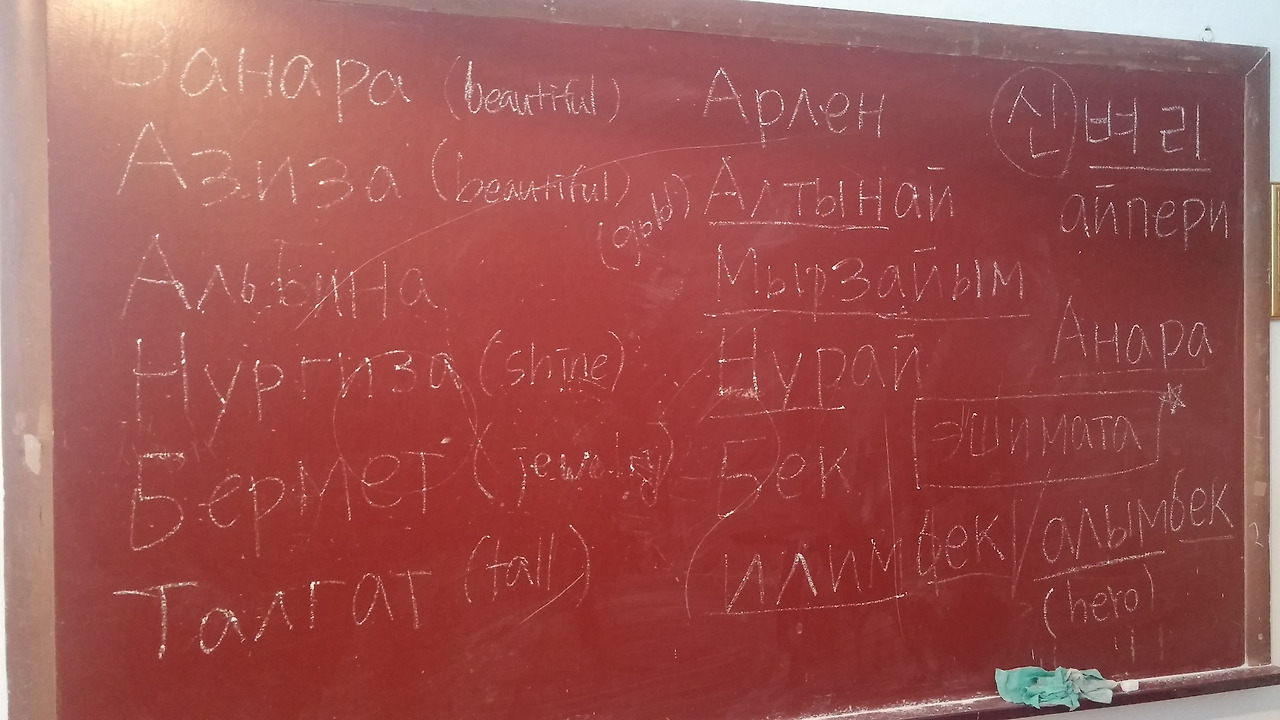 Занара (beautiful)
Азиза (beautiful)
Альбина
Нургиза (shine)
Бермет (jewelry)
Талгат (tall)
Арлен
Алтынай
Мырзайым
Нурай
Бек
(илим бек / алымбек
(hero)
신 벼리
айпери
Анара
эшимата